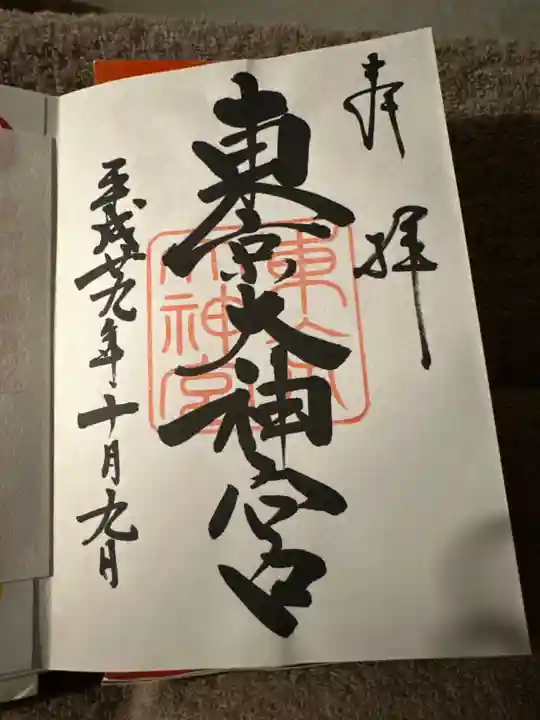 奉拝
東京大神宮
東京大神宮
平成廿九年十月九日